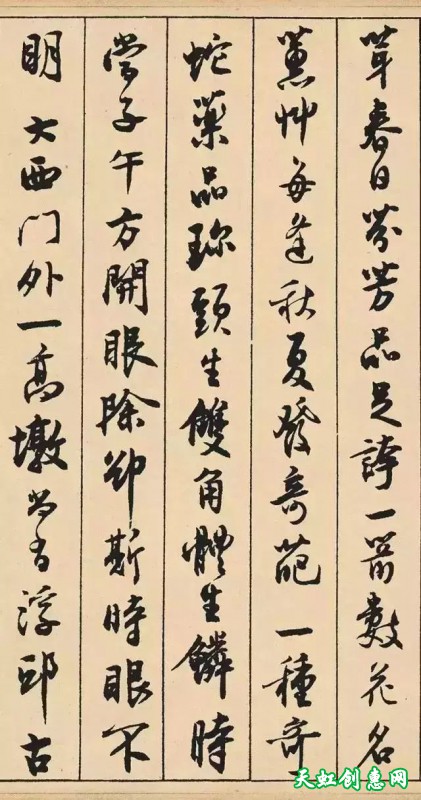 茸春日芬芳品足誇一箭數花名
蕙艸每逢秋夏發奇葩一種奇
蛇藥品珍頭生雙角體生鱗時
當子午方開眼除卻斯時眼不
明大西門外一高墩尚有浮邱古
天虹创惠网